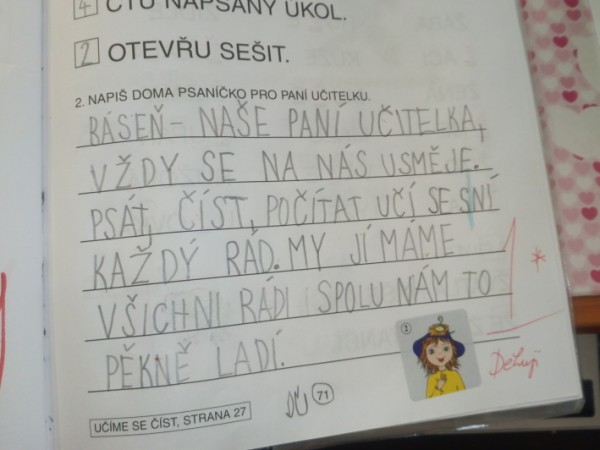 4 ČTU NAPSANÝ ÚKOL.
2 OTEVŘU SEŠIT.
2. NAPIŠ DOMA PSANÍČKO PRO PANÍ UČITELKU.
BÁSEŇ - NAŠE PANÍ UČITELKA,
VŽDY SE NA NÁS USMĚJE.
PSÁT, ČÍST, POČÍTAT UČÍ SE S NÍ
KAŽDÝ RÁD. MY JÍ MÁME
VŠICHNI RÁDI SPOLU NÁM TO
PĚKNĚ LADÍ.
1 *
1
Děkuji
DÚ 71
UČÍME SE ČÍST, STRANA 27